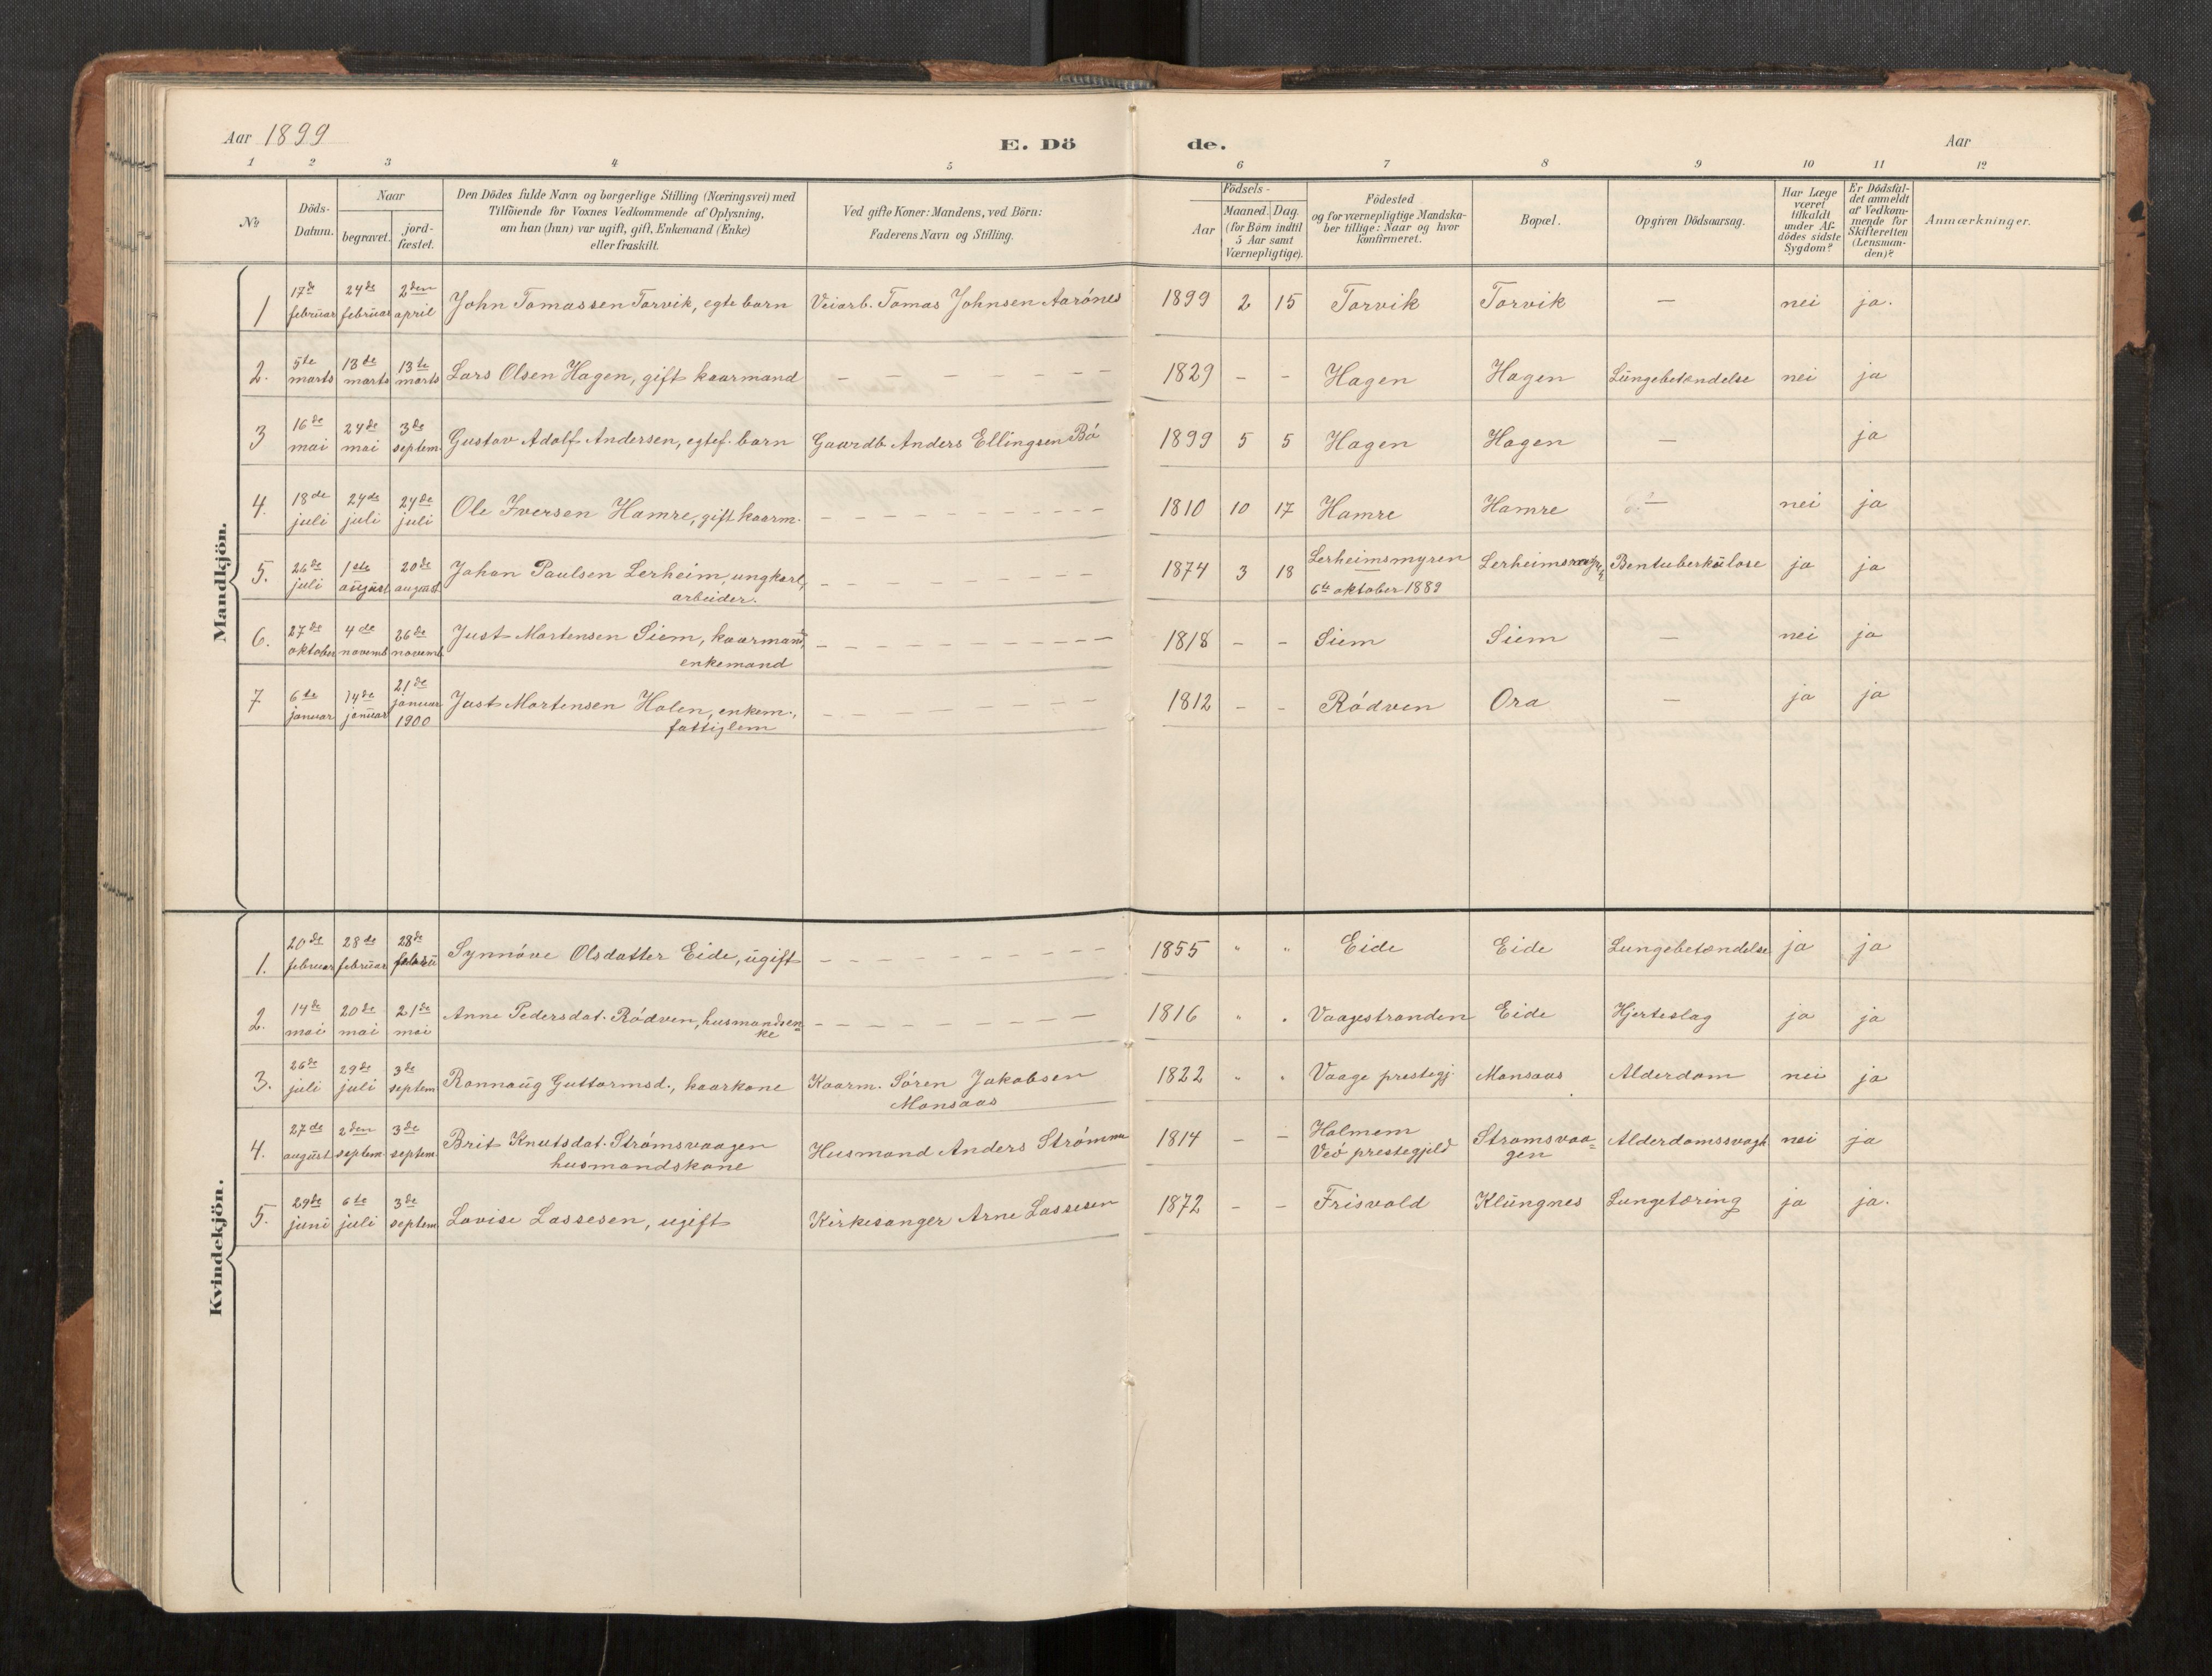 Aar 1899
E. Dö
de.
Aar
1 2 3 4 5 6 7 8 9 10 11 12
№
Döds-
Datum.
Naar
begravet.
jord-
fæstet.
Den Dödes fulde Navn og borgerlige Stilling (Næringsvei) med
Tilföiende for Voxnes Vedkommende af Oplysning,
om han (hun) var ugift, gift, Enkemand (Enke)
eller fraskilt.
Ved gifte Koner: Mandens, ved Börn:
Faderens Navn og Stilling.
Födsels-
Aar
Maaned. Dag.
(for Börn indtil
5 Aar samt
Værnepligtige).
Födested
og for værnepligtige Mandska-
ber tillige: Naar og hvor
konfirmeret.
Bopæl.
Opgiven Dödsaarsag.
Har Læge
været
tilkaldt
under Af-
dödes sidste
Sygdom?
Er Dödsfal-
det anmeldt
af Vedkom-
mende for
Skifteretten
(Lensman-
den)?
Anmærkninger.
Mandkjön.
1 17de februar 24de februar 2den april John Tomassen Torvik, egte barn Veiarb. Tomas Johnsen Aarönes 1899 2 15 Torvik Torvik — nei ja.
2. 5te marts 13de marts 13te marts Lars Olsen Hagen, gift kaarmand - - - - - - - - 1829 - - Hagen Hagen Lungebetændelse nei ja
3 16de mai 24de mai 3de septem. Gustav Adolf Andersen, egtef. barn Gaardb. Anders Ellingsen Bö 1899 5 5 Hagen Hagen — ja
4. 18de juli 24de juli 24de juli Ole Iversen Hamre, gift kaarm. - - - - - - - - 1810 10 17 Hamre Hamre — nei ja
5. 26de juli 1ste august 20de august Johan Paulsen Lerheim, ungkarl, - - - - - - - - 1874 3 18 Lerheimsmyren Bentuberkulose ja ja
arbeider. 6te oktober 1889
6. 27de oktober 4de novemb. 26de novemb. Just Mortensen Siem, kaarmand, - - - - - - - - 1818 - - Siem Siem — nei ja
enkemand
7 6te januar 14de januar 21de januar 1900 Just Mortensen Holen, enkem., - - - - - - - - 1812 - - Rödven Ora — ja ja
fattiglem
Kvindekjön.
1. 20de februar 28de februar 28de Synnöve Olsdatter Eide, ugift - - - - - - - - 1855 " " Eide Eide Lungebetændelse ja ja
2. 14de mai 20de mai 21de mai Anne Pedersdat. Rödven, husmandsen- - - - - - - - - 1816 " " Vaagestranden Eide Hjerteslag ja ja
ke
3. 26de juli 29de juli 3de septem Ronnaug Guttormsd., kaarkone Kaarm. Sören Jakobsen 1822 " " Vaage prestegj. Monsaas Alderdom nei ja
Monsaas
4. 27de august 2den septem. 3de septem. Brit Knutsdat. Strömsvaagen Husmand Anders Strömmen 1814 - - Holmem Strömsvaa- Alderdomssvagh. nei ja
husmandskone Veö prestegjeld gen
5. 29de juni 6te juli 3de septem Lovise Lassesen, ugift Kirkesanger Arne Lassesen 1872 - - Frisvold Klungnes Lungetæring ja ja.